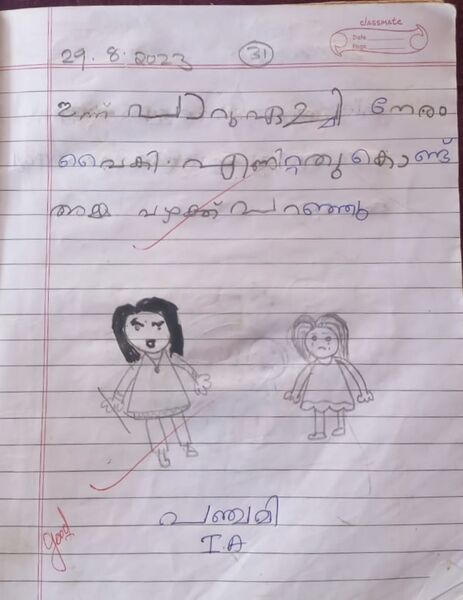 classmate
Date
Page
29.8.2023 31
ഇന്ന് പാറുഏച്ചി നേരം
വൈകി എണിറ്റതു കൊണ്ട്
അമ്മ വഴക്ക് പറഞ്ഞു
പഞ്ചമി
I.A
Good